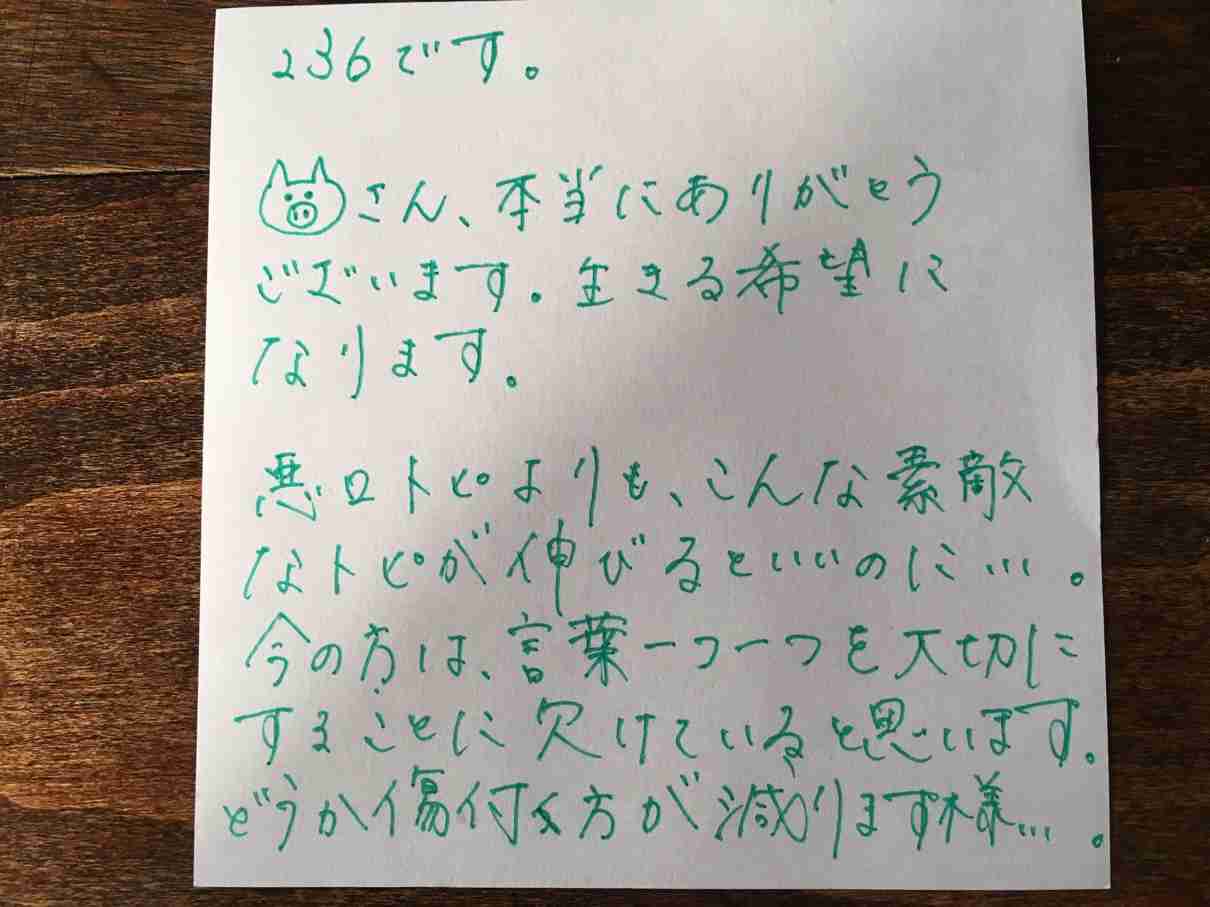 236です。
さん、本当にありがとう
ございます。生きる希望に
なります。
悪口トピよりも、こんな素敵
なトピが伸びるといいのに…。
今の方は、言葉一つ一つを大切に
することに欠けていると思います。
どうか傷付く方が減ります様…。